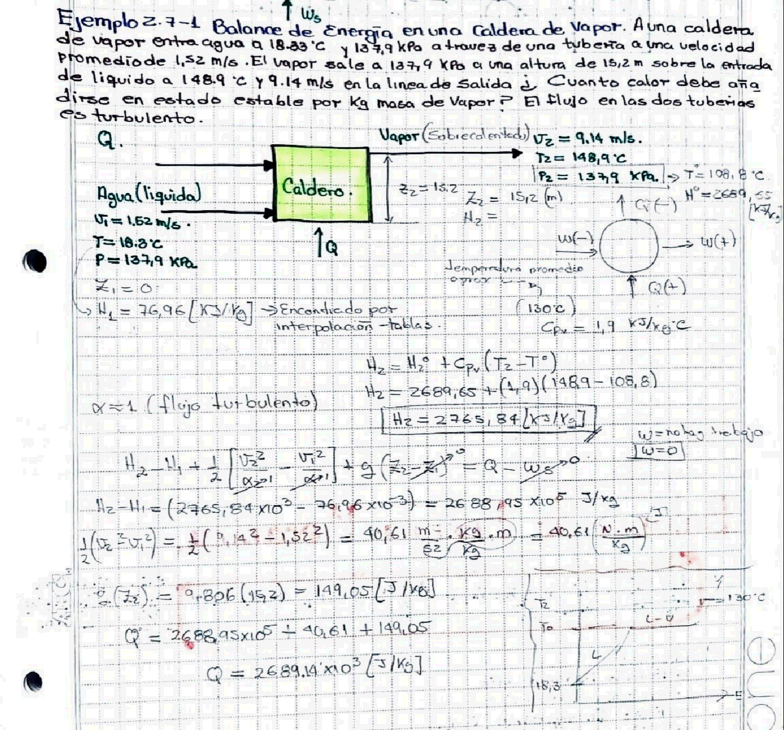 ↑ Ws
Ejemplo 2.7-1 Balance de Energía en una Caldera de Vapor. A una caldera
de vapor entra agua a 18.33°C y 137,9 kPa a traves de una tubería a una velocidad
promedio de 1,52 m/s. El vapor sale a 137,9 kPa a una altura de 15,2 m sobre la entrada
de liquido a 148.9 °C y 9.14 m/s en la linea de Salida ¿ Cuanto calor debe aña
dirse en estado estable por Kg masa de Vapor? El flujo en las dos tuberias
es turbulento.
Q.
Vapor (Sobrecalentado) V2 = 9.14 m/s.
T2 = 148,9°C
P2 = 137,9 KPa. → T° = 108,8°C
H° = 2689,65 [KJ/Kg]
Caldero.
Z2 = 15.2
Z2 = 15,2 (m)
H2 =
Agua (liquida)
V1 = 1,52 m/s.
T = 18.3°C
P = 137,9 KPa
Z1 = 0
↑Q
Q(-)
W(-)
W(+)
Q(+)
→ H1 = 76,96 [KJ/Kg] → Encontrado por
interpolación - tablas.
Temperatura promedio
(130°C)
Cpv = 1,9 KJ/Kg°C
H2 = H2° + Cpv (T2 - T°)
H2 = 2689,65 + (1,9)(148,9 - 108,8)
H2 = 2765,84 [KJ/Kg]
α ≈ 1 (flujo turbulento)
w = no hay trabajo
w = 0
H2 - H1 + 1/2 [V2²/α→1 - V1²/α→1] + g (Z2 - Z1)→0 = Q - Ws→0
H2 - H1 = (2765,84x10³ - 76,96x10⁻³) = 2688,95 x10⁵ J/Kg
1/2 (V2² - V1²) = 1/2 (9,14² - 1,52²) = 40,61 m/s2 · Kg/Kg · m = 40,61 (N.m/Kg) (J)
(Z2) = 9.806 (15,2) = 149,05 [J/KG]
Q = 2688,95x10⁵ + 40,61 + 149,05
Q = 2689.14 x10³ [J/Kg]
T2
T0
18,3
L
L-V
V
130°C
E
euc